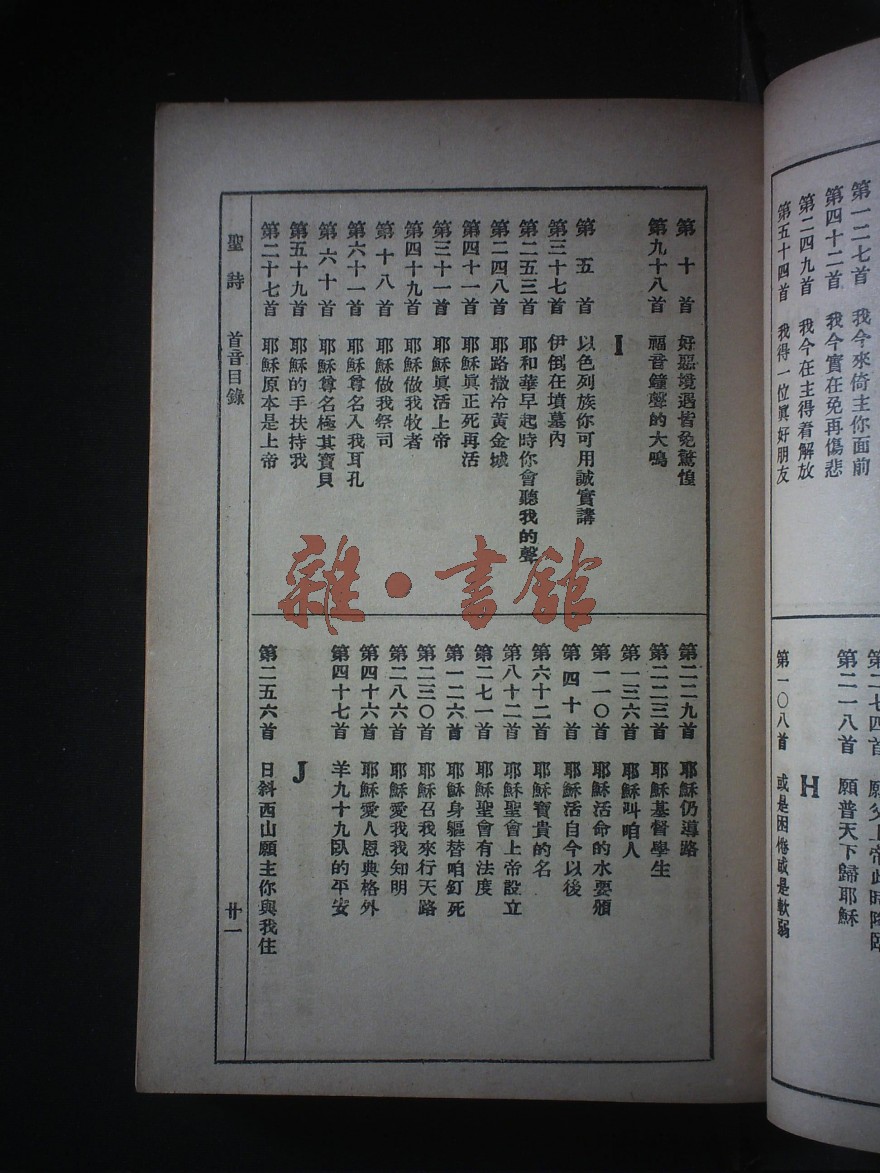 第一二七首 我今來倚主你面前
第四十二首 我今實在免再傷悲
第二四九首 我今在主得着解放
第五十四首 我得一位眞好朋友
第二七四首 願父上帝此時降臨
第二一八首 願普天下歸耶穌
H
第一〇八首 或是困倦或是軟弱
第十首 好惡境遇皆免驚惶
第九十八首 福音鐘聲的大鳴
I
第五首 以色列族你可用誠實講
第三十七首 伊倒在墳墓內
第二五三首 耶和華早起時你會聽我的聲
第二四八首 耶路撒冷黃金城
第四十一首 耶穌眞正死再活
第三十一首 耶穌眞活上帝
第四十九首 耶穌做我牧者
第十八首 耶穌做我祭司
第六十一首 耶穌尊名入我耳孔
第六十首 耶穌尊名極其寶貝
第五十九首 耶穌的手扶持我
第二十七首 耶穌原本是上帝
第二二九首 耶穌仍導路
第二二三首 耶穌基督學生
第一三六首 耶穌叫咱人
第一一〇首 耶穌活命的水要頒
第四十首 耶穌活自今以後
第六十二首 耶穌寶貴的名
第八十二首 耶穌聖會上帝設立
第二七一首 耶穌聖會有法度
第一二六首 耶穌身軀替咱釘死
第二三〇首 耶穌召我來行天路
第二八六首 耶穌愛我我知明
第四十六首 耶穌愛人恩典格外
第四十七首 羊九十九臥的平安
J
第二五六首 日斜西山願主你與我住
聖詩 首音目錄 廿一
雜·書館